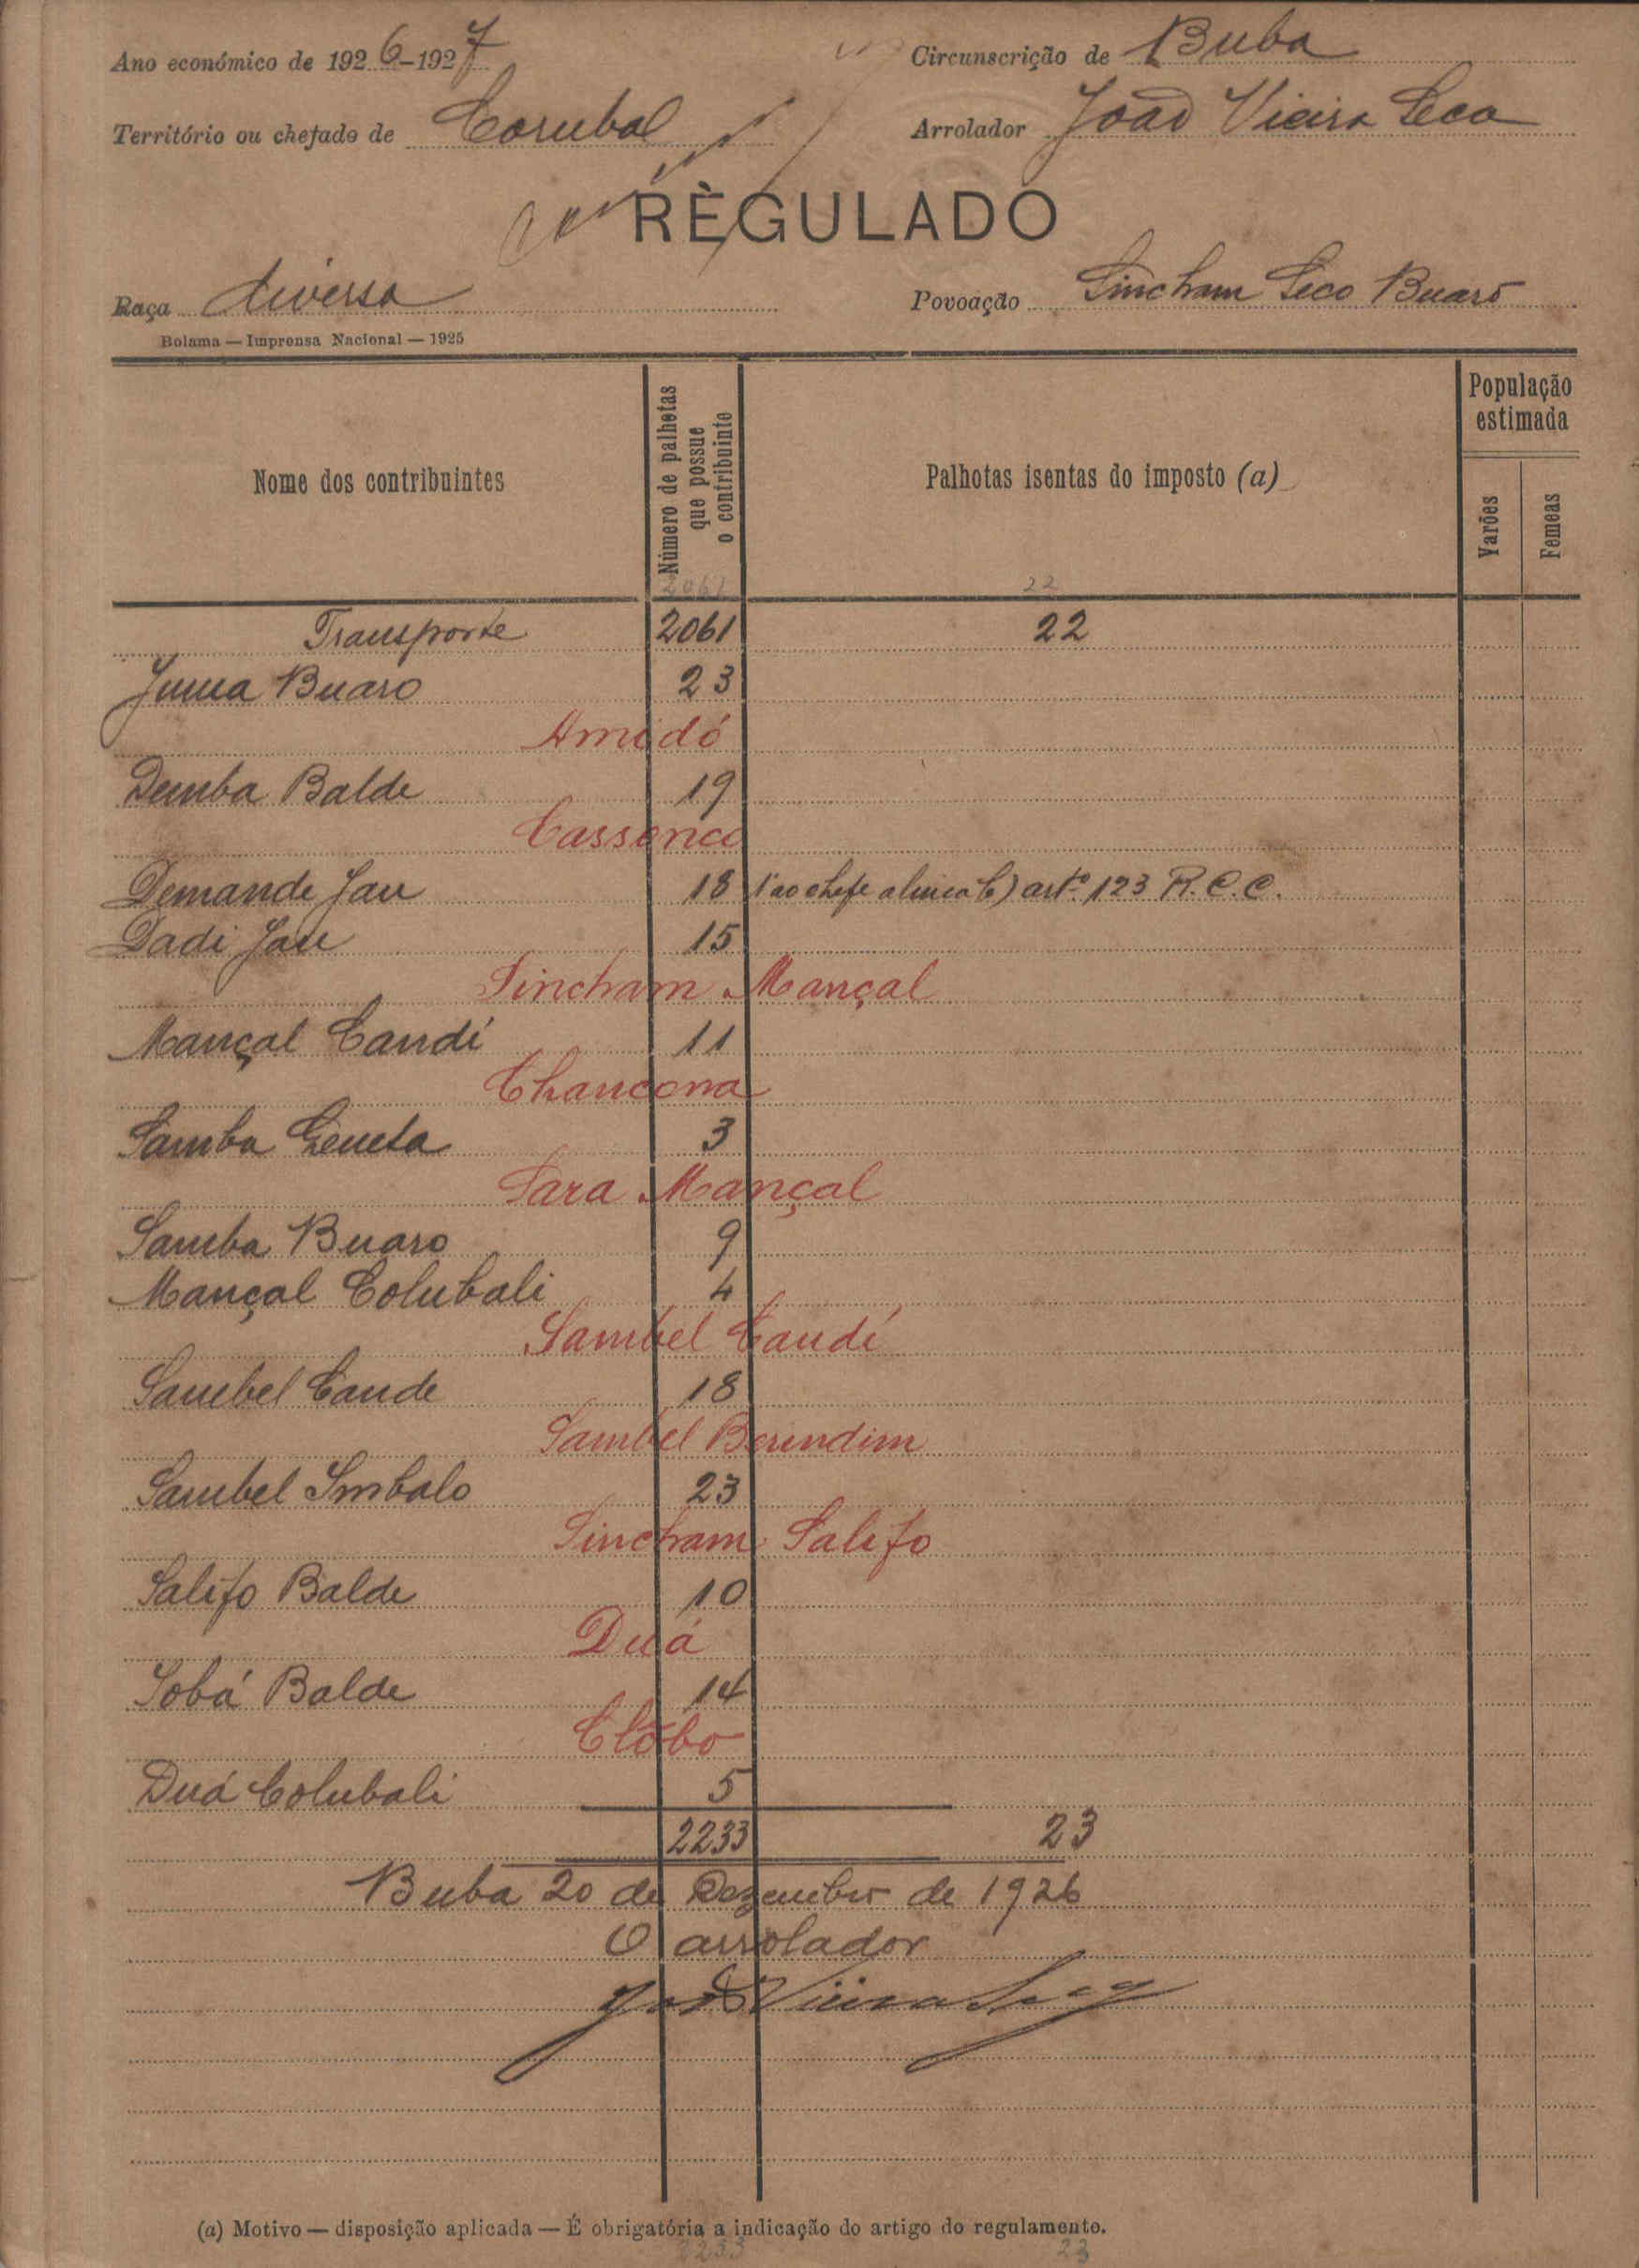 Ano económico de 1926-1927
Circunscrição de Buba
Território ou chefado de Corubal
Arrolador João Vieira Seca
RÈGULADO
Raça diversa
Povoação Sincham Seco Buaró
Bolama — Imprensa Nacional — 1925
Nome dos contribuintes
Número de palhotas que possue o contribuinte
Palhotas isentas do imposto (a)
População estimada
Varões
Femeas
2061 22
Transporte 2061 22
Juma Buaro 23
Amidó
Demba Balde 19
Cassonco
Demande Jau 18 1 ao chefe alinea b) artº 123 R.C.C.
Dadi Jau 15
Sincham Mançal
Mançal Candí 11
Chancona
Samba Geneta 3
Sara Mançal
Samba Buaro 9
Mançal Colubali 4
Sambel Candí
Sambel Cande 18
Sambel Berindim
Sambel Embalo 23
Sincham Salifo
Salifo Balde 10
Duá
Sobá Balde 14
Clôbo
Duá Colubali 5
2233 23
Buba 20 de Dezembro de 1926
O arrolador
João Vieira Seca
(a) Motivo — disposição aplicada — É obrigatória a indicação do artigo do regulamento.
2233 23